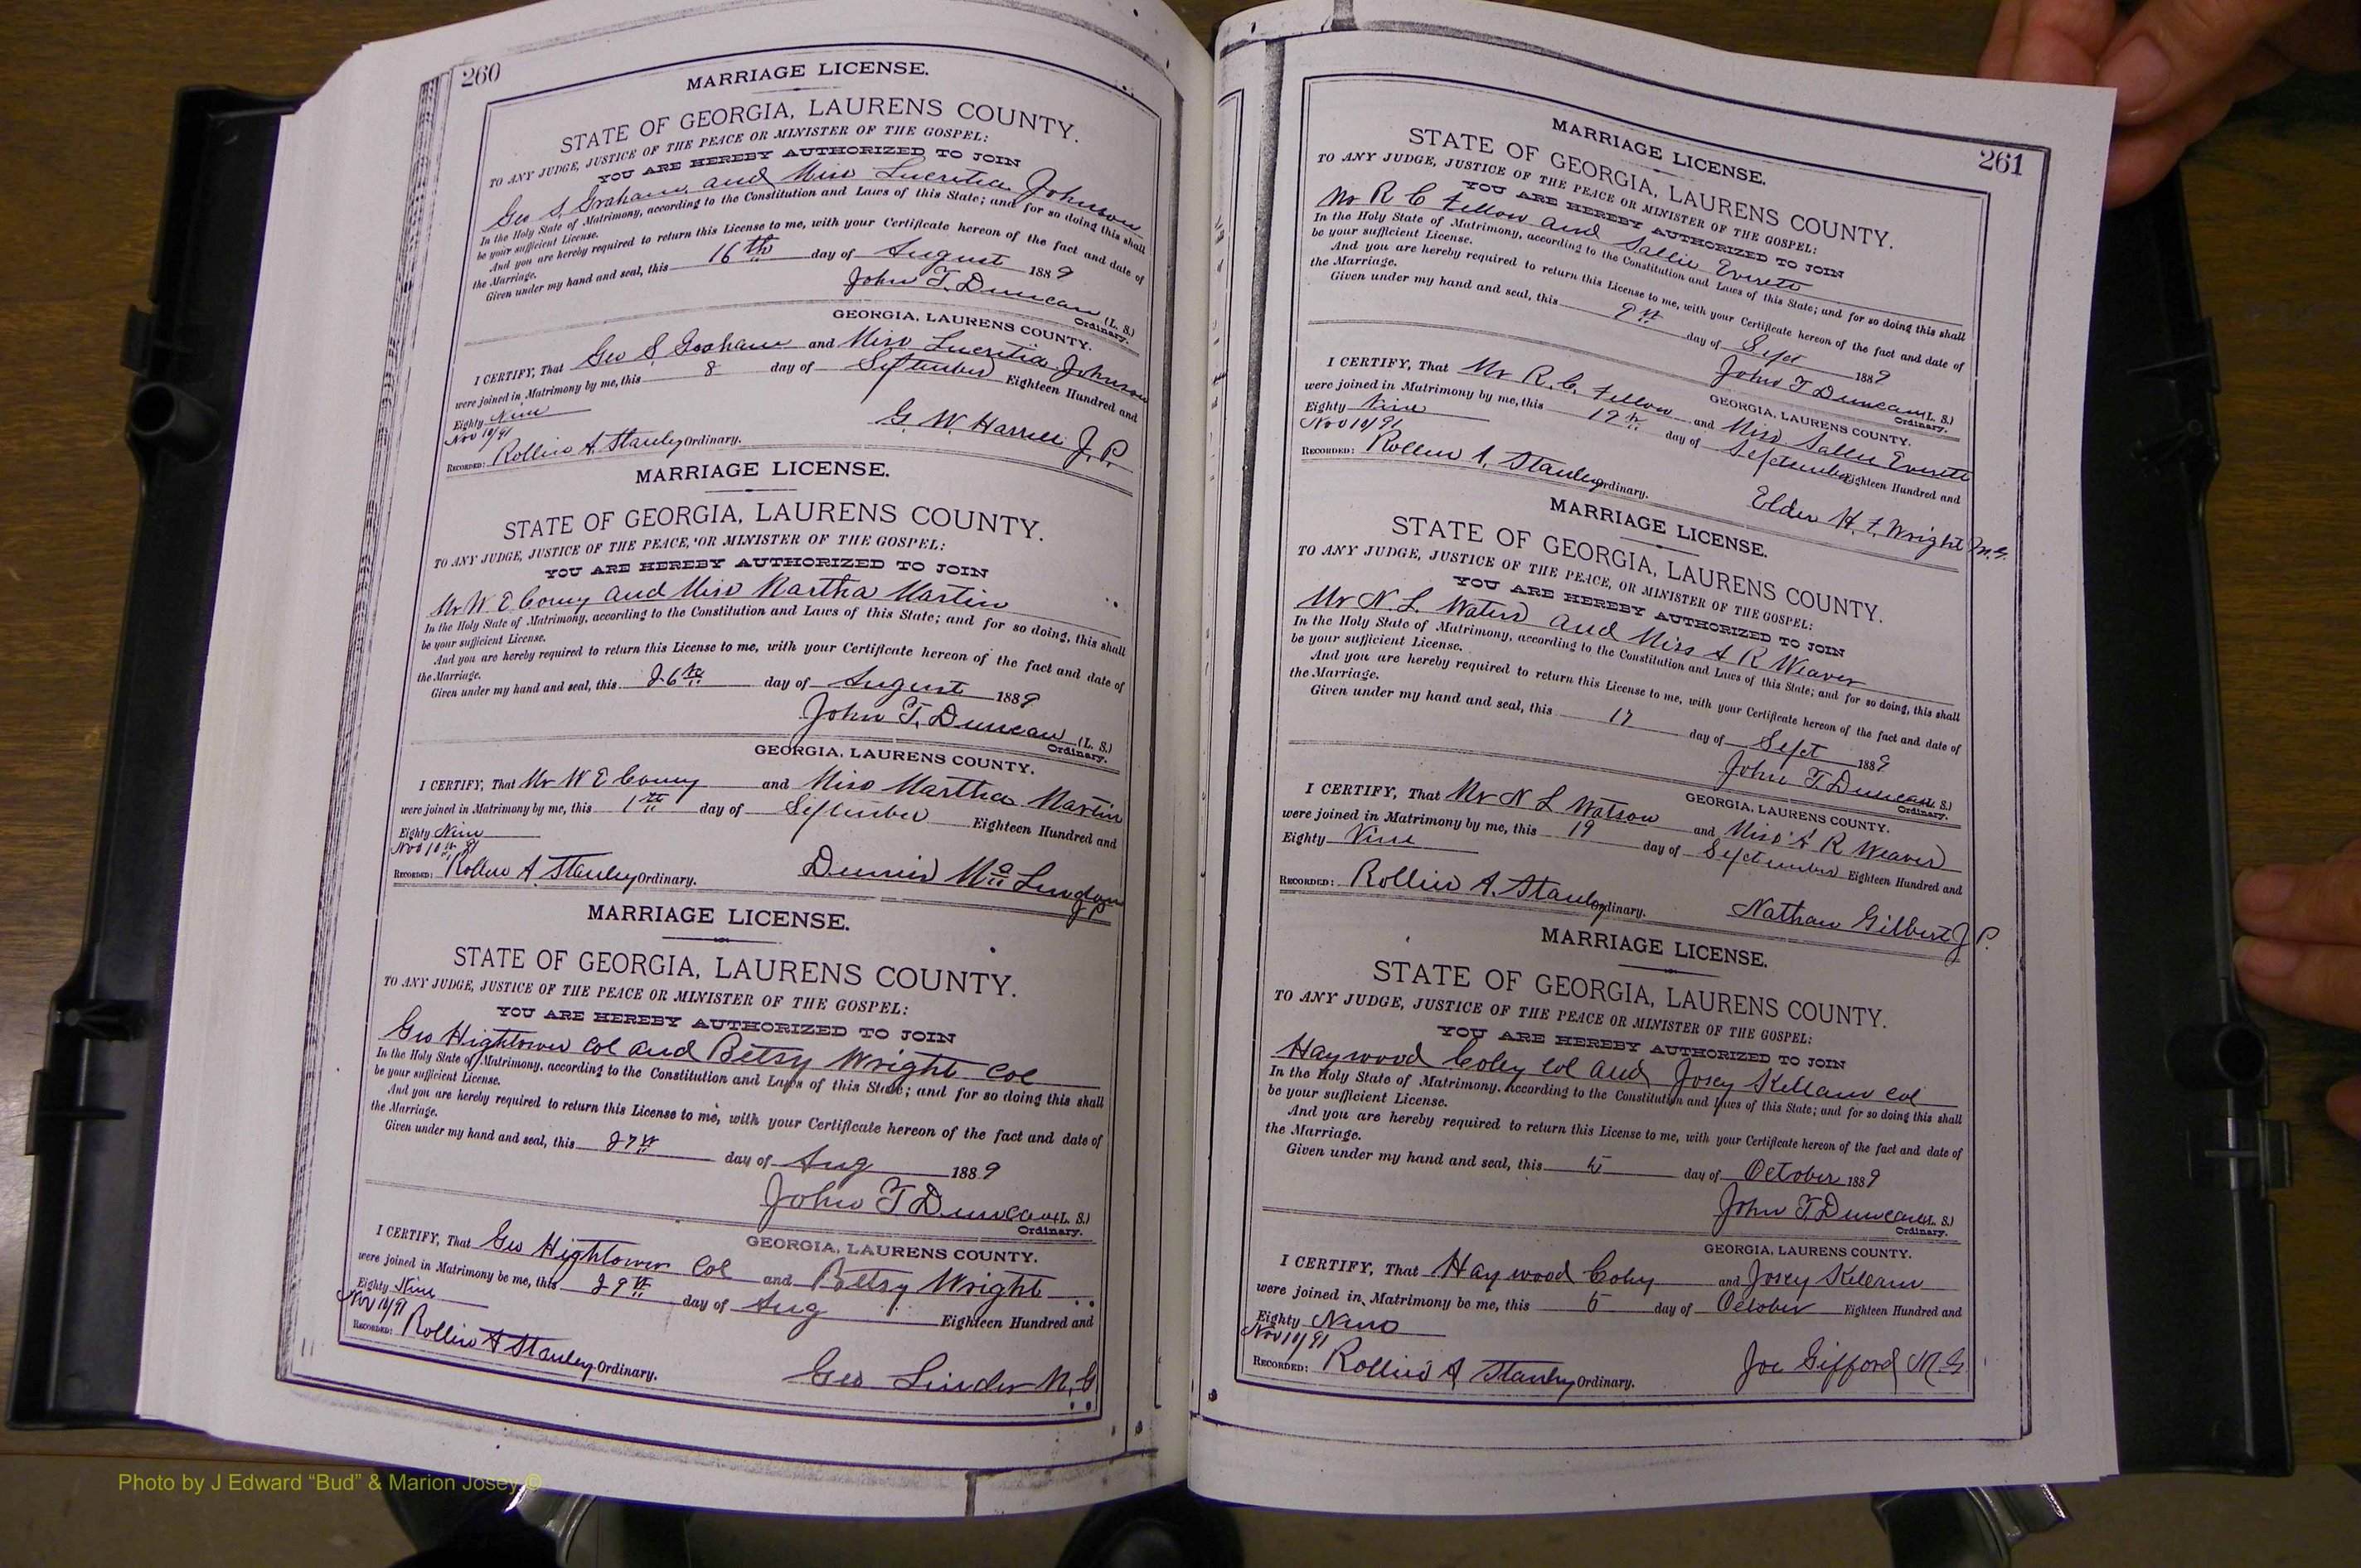 260
MARRIAGE LICENSE.
STATE OF GEORGIA, LAURENS COUNTY.
TO ANY JUDGE, JUSTICE OF THE PEACE OR MINISTER OF THE GOSPEL:
YOU ARE HEREBY AUTHORIZED TO JOIN
Geo S. Graham and Miss Lucretia Johnson
In the Holy State of Matrimony, according to the Constitution and Laws of this State; and for so doing this shall
be your sufficient License.
And you are hereby required to return this License to me, with your Certificate hereon of the fact and date of
the Marriage.
Given under my hand and seal, this 16th day of August 1889
John T. Duncan (L. S.)
Ordinary.
GEORGIA, LAURENS COUNTY.
I CERTIFY, That Geo S. Graham and Miss Lucretia Johnson
were joined in Matrimony by me, this 8 day of September Eighteen Hundred and
Eighty Nine
Nov 10/91
RECORDED: Rollin A. Stanley Ordinary. G. W. Harrell J. P.
MARRIAGE LICENSE.
STATE OF GEORGIA, LAURENS COUNTY.
TO ANY JUDGE, JUSTICE OF THE PEACE, OR MINISTER OF THE GOSPEL:
YOU ARE HEREBY AUTHORIZED TO JOIN
Mr W E and Miss Martha Martin
In the Holy State of Matrimony, according to the Constitution and Laws of this State; and for so doing, this shall
be your sufficient License.
And you are hereby required to return this License to me, with your Certificate hereon of the fact and date of
the Marriage.
Given under my hand and seal, this 26th day of August 1889
John T. Duncan (L. S.)
Ordinary.
GEORGIA, LAURENS COUNTY.
I CERTIFY, That Mr W E and Miss Martha Martin
were joined in Matrimony by me, this 1th day of September Eighteen Hundred and
Eighty Nine
Nov 10th 91
RECORDED: Rollin A. Stanley Ordinary. Dennis JP
MARRIAGE LICENSE.
STATE OF GEORGIA, LAURENS COUNTY.
TO ANY JUDGE, JUSTICE OF THE PEACE OR MINISTER OF THE GOSPEL:
YOU ARE HEREBY AUTHORIZED TO JOIN
Geo Hightower Col and Betsy Wright Col
In the Holy State of Matrimony, according to the Constitution and Laws of this State; and for so doing this shall
be your sufficient License.
And you are hereby required to return this License to me, with your Certificate hereon of the fact and date of
the Marriage.
Given under my hand and seal, this 27th day of Aug 1889
John T Duncan (L. S.)
Ordinary.
GEORGIA, LAURENS COUNTY.
I CERTIFY, That Geo Hightower Col and Betsy Wright
were joined in Matrimony be me, this 29th day of Aug Eighteen Hundred and
Eighty Nine
Nov 10/91
RECORDED: Rollin A Stanley Ordinary.
Geo Linder M. G
261
MARRIAGE LICENSE.
STATE OF GEORGIA, LAURENS COUNTY.
TO ANY JUDGE, JUSTICE OF THE PEACE OR MINISTER OF THE GOSPEL:
YOU ARE HEREBY AUTHORIZED TO JOIN
Mr R C Fellow and Sallie Everett
In the Holy State of Matrimony, according to the Constitution and Laws of this State; and for so doing this shall
be your sufficient License.
And you are hereby required to return this License to me, with your Certificate hereon of the fact and date of
the Marriage.
Given under my hand and seal, this 9th day of Sept 1889
John T Duncan (L. S.)
Ordinary.
GEORGIA, LAURENS COUNTY.
I CERTIFY, That Mr R. C. Fellow and Miss Sallie Everett
were joined in Matrimony by me, this 12th day of September Eighteen Hundred and
Eighty Nine
Nov 10/91
RECORDED: Rollin A. Stanley Ordinary.
Elder H. F. Wright M. G.
MARRIAGE LICENSE.
STATE OF GEORGIA, LAURENS COUNTY.
TO ANY JUDGE, JUSTICE OF THE PEACE, OR MINISTER OF THE GOSPEL:
YOU ARE HEREBY AUTHORIZED TO JOIN
Mr N. L. Waters and Miss A R Weaver
In the Holy State of Matrimony, according to the Constitution and Laws of this State; and for so doing, this shall
be your sufficient License.
And you are hereby required to return this License to me, with your Certificate hereon of the fact and date of
the Marriage.
Given under my hand and seal, this 17 day of Sept 1889
John T. Duncan (L. S.)
Ordinary.
GEORGIA, LAURENS COUNTY.
I CERTIFY, That Mr N L Watson and Miss A R Weaver
were joined in Matrimony by me, this 19 day of September Eighteen Hundred and
Eighty Nine
RECORDED: Rollin A. Stanley Ordinary.
Nathan Gilbert J P.
MARRIAGE LICENSE.
STATE OF GEORGIA, LAURENS COUNTY.
TO ANY JUDGE, JUSTICE OF THE PEACE OR MINISTER OF THE GOSPEL:
YOU ARE HEREBY AUTHORIZED TO JOIN
Haywood Coley Col and Josey Kellam Col
In the Holy State of Matrimony, according to the Constitution and Laws of this State; and for so doing this shall
be your sufficient License.
And you are hereby required to return this License to me, with your Certificate hereon of the fact and date of
the Marriage.
Given under my hand and seal, this 5 day of October 1889
John T. Duncan (L. S.)
Ordinary.
GEORGIA, LAURENS COUNTY.
I CERTIFY, That Haywood Coley and Josey Kellam
were joined in Matrimony be me, this 6 day of October Eighteen Hundred and
Eighty Nine
Nov 10/91
RECORDED: Rollin A Stanley Ordinary.
Joe Gifford M. G.
Photo by J Edward “Bud” & Marion Josey ©